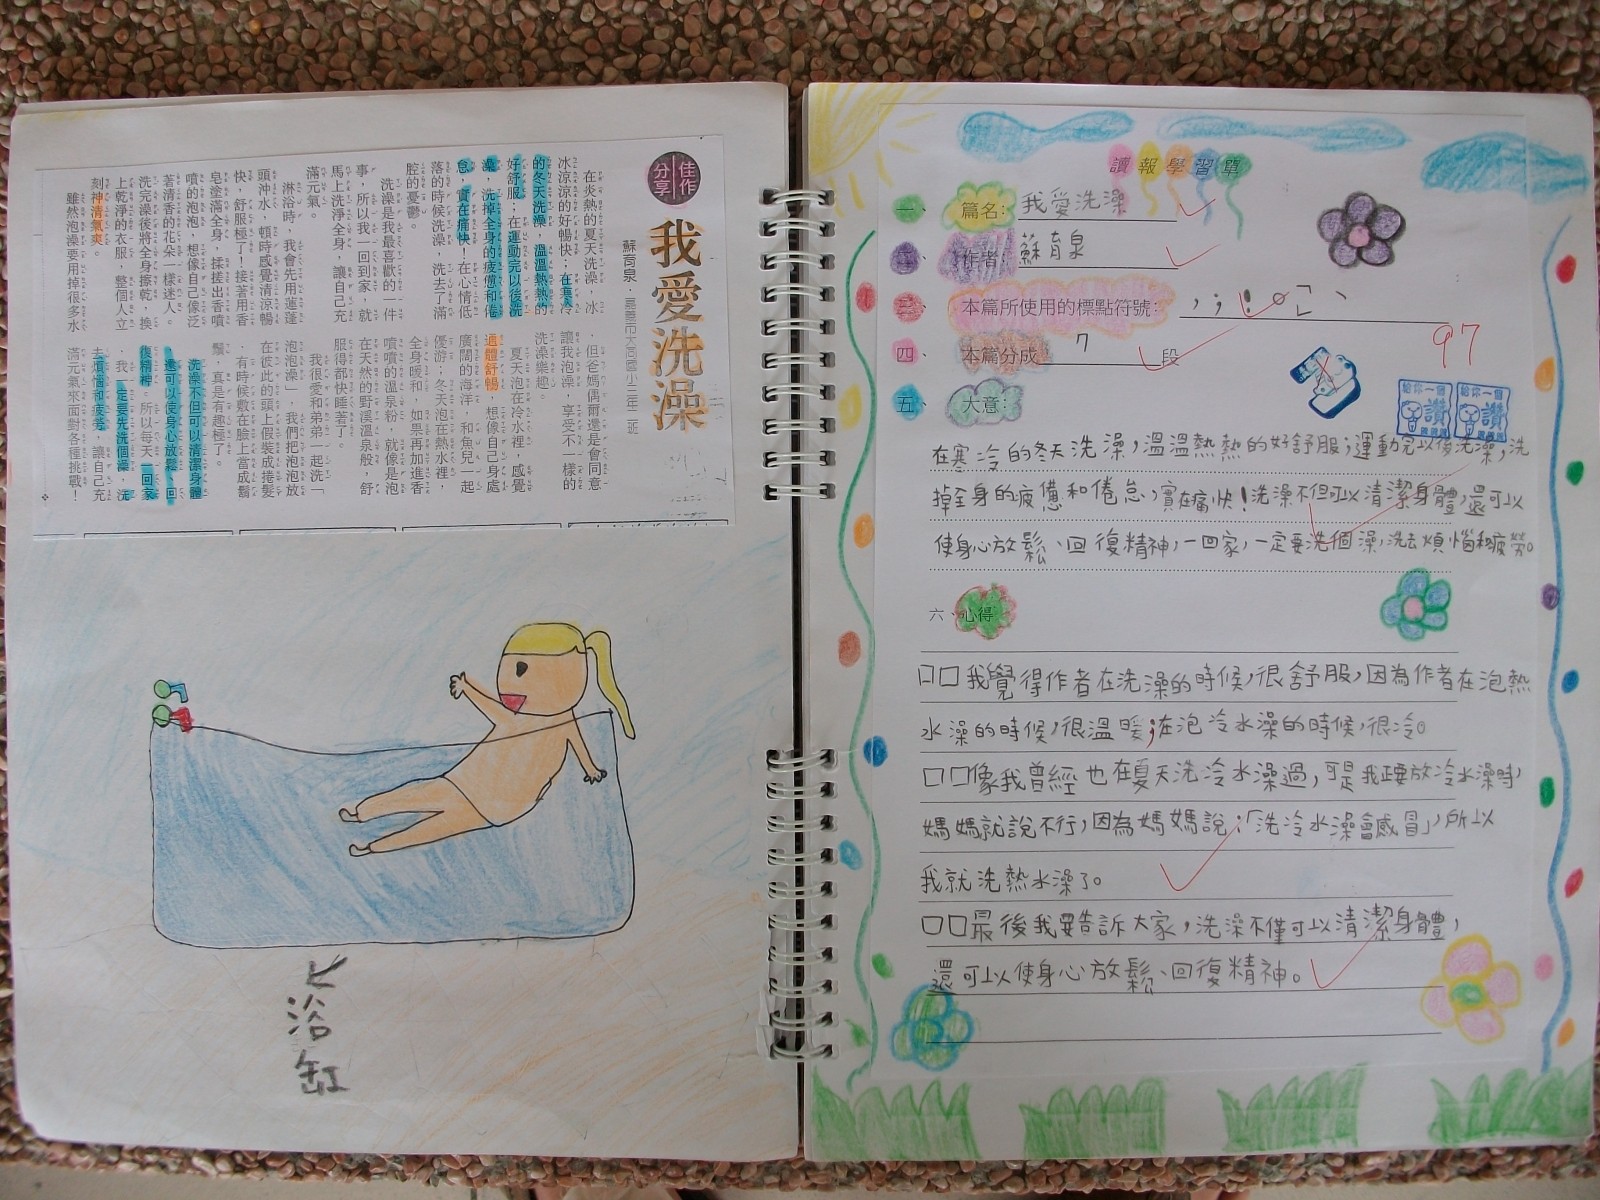 佳作分享
我愛洗澡
蘇育泉．嘉義市大同國小三年二班
在炎熱的夏天洗澡，冰
冰涼涼的好暢快；在寒冷
的冬天洗澡，溫溫熱熱的
好舒服；在運動完以後洗
澡，洗掉全身的疲憊和倦
怠，實在痛快！在心情低
落的時候洗澡，洗去了滿
腔的憂鬱。
洗澡是我最喜歡的一件
事，所以我一回到家，就
馬上洗淨全身，讓自己充
滿元氣。
淋浴時，我會先用蓮蓬
頭沖水，頓時感覺清涼暢
快，舒服極了！接著用香
皂塗滿全身，揉搓出香噴
噴的泡泡，想像自己像泛
著清香的花朵一樣迷人。
洗完澡後將全身擦乾，換
上乾淨的衣服，整個人立
刻神清氣爽。
雖然泡澡要用掉很多水
但爸媽偶爾還是會同意
讓我泡澡，享受不一樣的
洗澡樂趣。
夏天泡在冷水裡，感覺
適體舒暢，想像自己身處
廣闊的海洋，和魚兒一起
優游；冬天泡在熱水裡，
全身暖和，如果再加進香
噴噴的溫泉粉，就像是泡
在天然的野溪溫泉般，舒
服得都快睡著了。
我很愛和弟弟一起洗「
泡泡澡」，我們把泡泡放
在彼此的頭上假裝成捲髮
，有時候敷在臉上當成鬍
鬚，真是有趣極了。
洗澡不但可以清潔身體
，還可以使身心放鬆、回
復精神。所以每天一回家
，我一定要先洗個澡，洗
去煩惱和疲勞，讓自己充
滿元氣來面對各種挑戰！
浴缸
讀報學習單
一、篇名：我愛洗澡
二、作者：蘇育泉
三、本篇所使用的標點符號：，；！。「、
四、本篇分成 7 段
97
給你一個讚
給你一個讚
五、大意：
在寒冷的冬天洗澡，溫溫熱熱的好舒服；運動完以後洗澡，洗
掉全身的疲憊和倦怠，實在痛快！洗澡不但可以清潔身體，還可以
使身心放鬆、回復精神，一回家，一定要洗個澡，洗去煩惱和疲勞。
六、心得
□□我覺得作者在洗澡的時候，很舒服，因為作者在泡熱
水澡的時候，很溫暖；在泡冷水澡的時候，很冷。
□□像我曾經也在夏天洗冷水澡過，可是我正要放冷水澡時，
媽媽就說不行，因為媽媽說：「洗冷水澡會感冒」，所以
我就洗熱水澡了。
□□最後我要告訴大家，洗澡不僅可以清潔身體，
還可以使身心放鬆、回復精神。